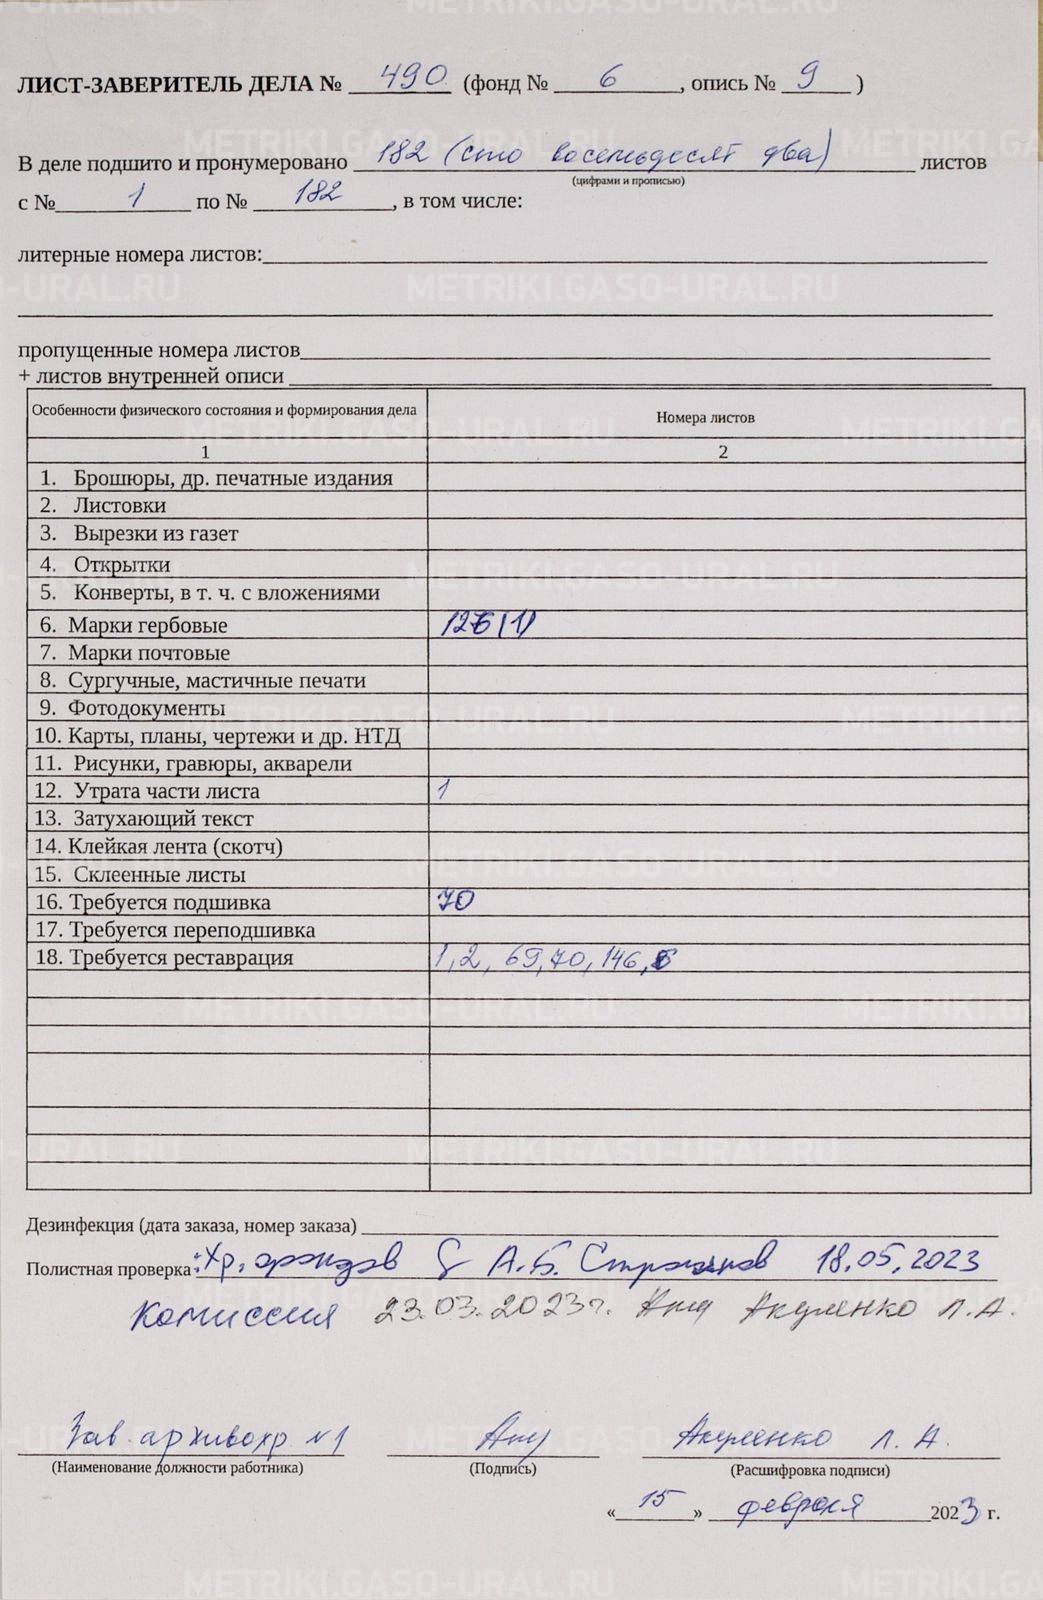 ЛИСТ-ЗАВЕРИТЕЛЬ ДЕЛА № 490 (фонд № 6, опись № 9)
В деле подшито и пронумеровано 182 (сто восемьдесят два) листов
(цифрами и прописью)
с № 1 по № 182, в том числе:
литерные номера листов:
пропущенные номера листов
+ листов внутренней описи
Особенности физического состояния и формирования дела Номера листов
1 2
1. Брошюры, др. печатные издания
2. Листовки
3. Вырезки из газет
4. Открытки
5. Конверты, в т. ч. с вложениями
6. Марки гербовые 126(1)
7. Марки почтовые
8. Сургучные, мастичные печати
9. Фотодокументы
10. Карты, планы, чертежи и др. НТД
11. Рисунки, гравюры, акварели
12. Утрата части листа 1
13. Затухающий текст
14. Клейкая лента (скотч)
15. Склеенные листы
16. Требуется подшивка 70
17. Требуется переподшивка
18. Требуется реставрация 1, 2, 69, 70, 146,
Дезинфекция (дата заказа, номер заказа)
Полистная проверка: Хр. фондов А.Б. 18.05.2023
Комиссия 23.03.2023г. Акуленко Л.А.
Зав. архивохр. №1 Акуленко Л. А.
(Наименование должности работника) (Подпись) (Расшифровка подписи)
« 15 » февраля 2023 г.
METRIKI.GASO-URAL.RU